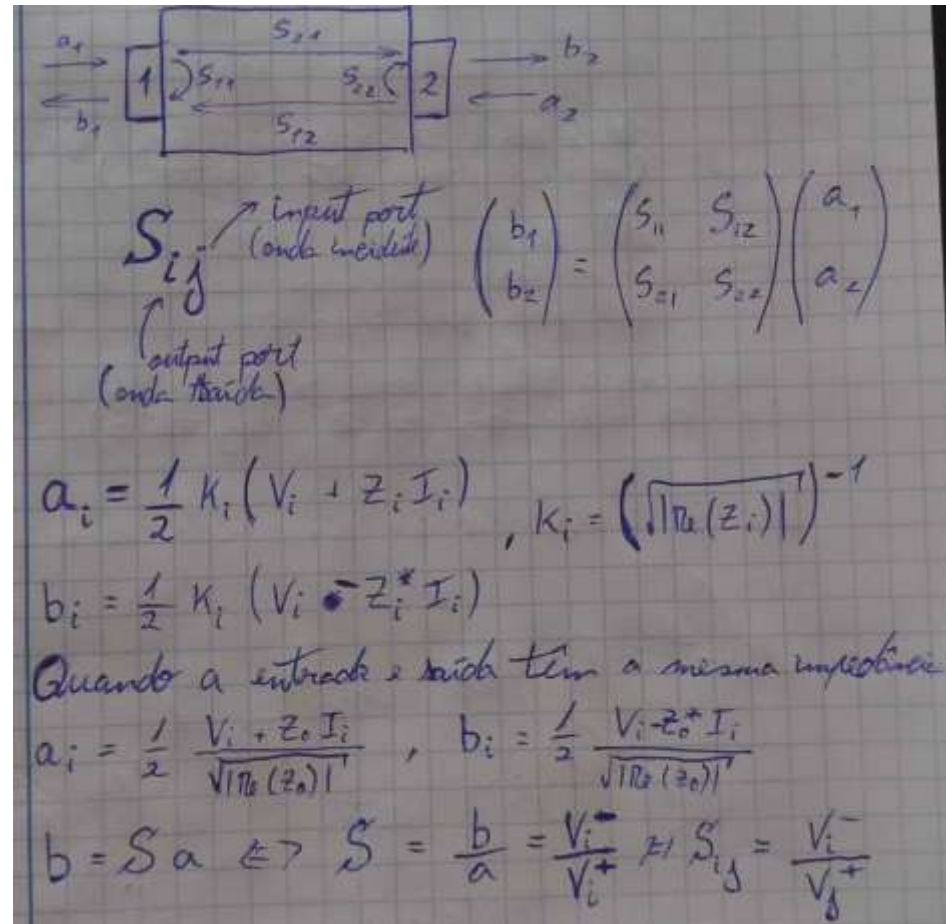 a₁ S₂₁ b₂
1 S₁₁ S₂₂ 2
b₁ S₁₂ a₂
S_ij
input port
(onda incidente)
output port
(onda saída)
(b₁ b₂) = (S₁₁ S₁₂ S₂₁ S₂₂) (a₁ a₂)
a_i = 1/2 K_i (V_i + Z_i I_i) , K_i = (√|Re(Z_i)|)⁻¹
b_i = 1/2 K_i (V_i - Z_i* I_i)
Quando a entrada e saída têm a mesma impedância
a_i = 1/2 (V_i + Z₀ I_i)/√|Re(Z₀)| , b_i = 1/2 (V_i - Z₀* I_i)/√|Re(Z₀)|
b = S a <=> S = b/a = V_i⁻/V_i⁺ S_ij = V_i⁻/V_j⁺